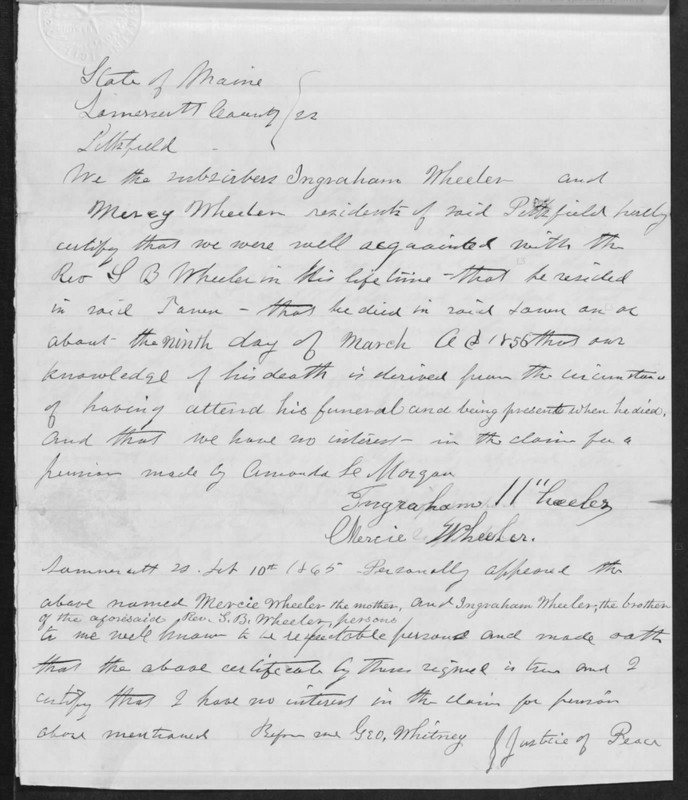 State of Maine
Somersett County } ss
Pittsfield
We the subscribers Ingraham Wheeler and
Mercy Wheeler residents of said Pittsfield hereby
certify that we were well acquainted with the
Rev S B Wheeler in his life time - that he resided
in said Town - that he died in said town on or
about the ninth day of March A D 1856 that our
knowledge of his death is derived from the circumstance
of having attend his funeral and being present when he died.
and that we have no interest in the claim for a
pension made by Amanda Morgan
Ingraham Wheeler
Mercie Wheeler.
Sommersett ss. 10th 1865 - Personally appeared the
above named Mercie Wheeler the mother, and Ingraham Wheeler, the brother
of the aforesaid Rev. S. B. Wheeler, persons
to me well known to be respectable persons and made oath
that the above certificate by them signed is true and I
certify that I have no interest in the claim for pension
above mentioned Before me Geo. Whitney Justice of Peace